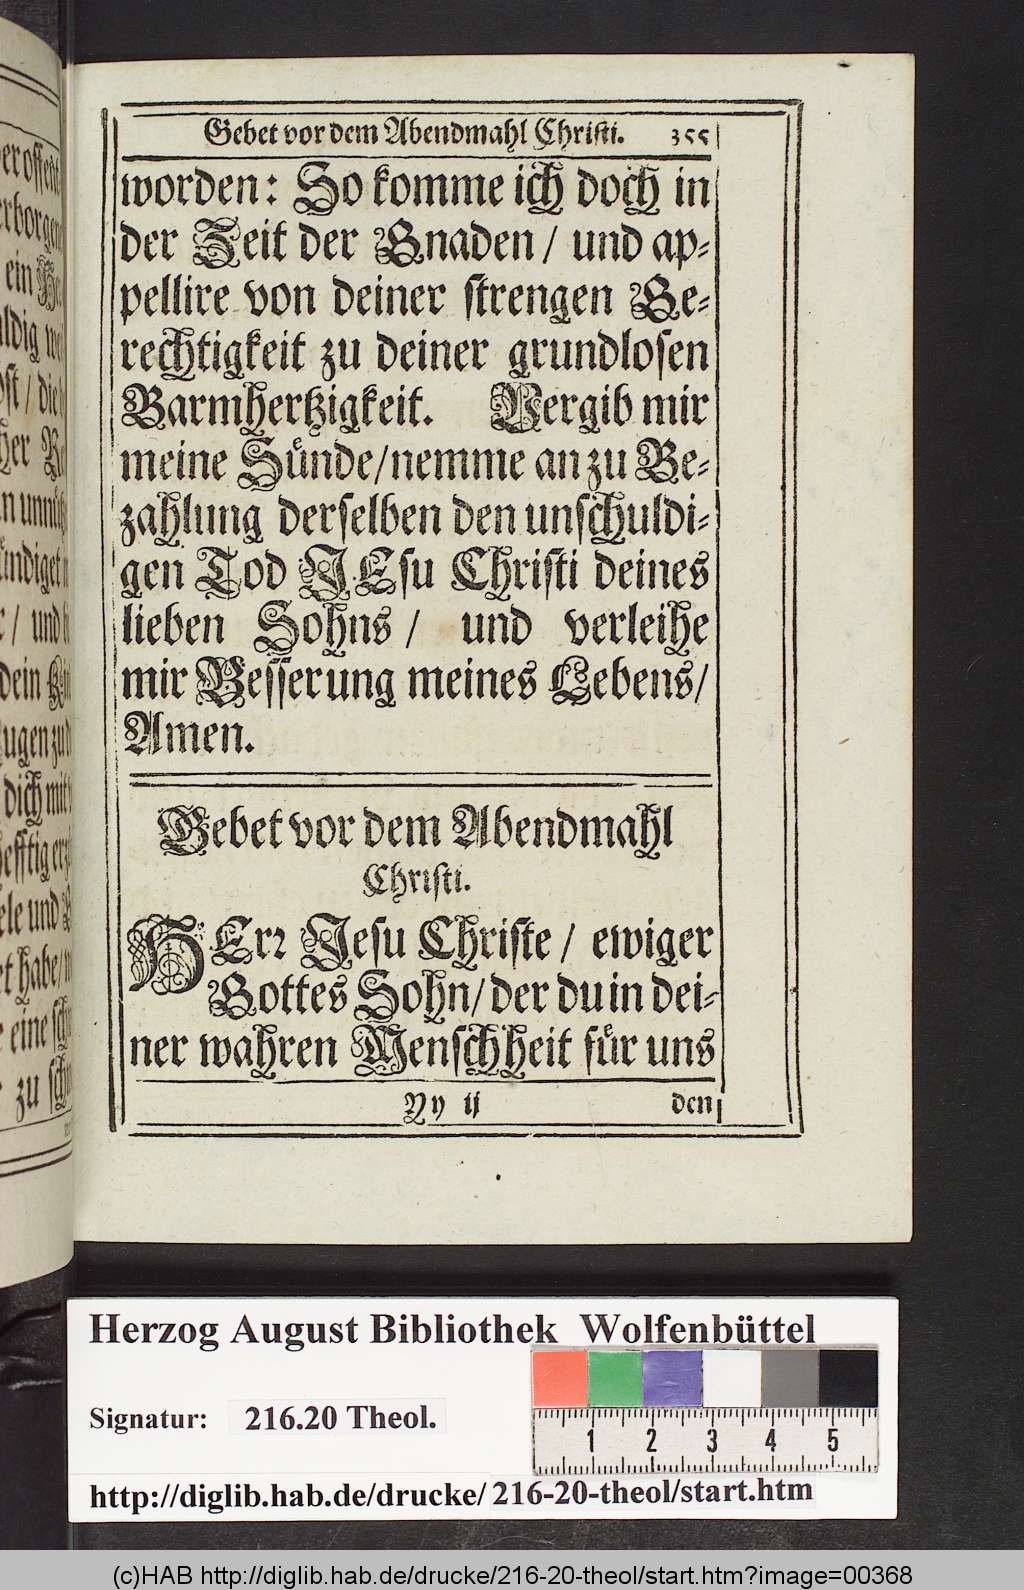 Gebet vor dem Abendmahl Christi. 355
worden: So komme ich doch in
der Zeit der Gnaden / und ap-
pellire von deiner strengen Ge-
rechtigkeit zu deiner grundlosen
Barmhertzigkeit. Vergib mir
meine Sünde/nemme an zu Be-
zahlung derselben den unschuldi-
gen Tod JEsu Christi deines
lieben Sohns / und verleihe
mir Besserung meines Lebens/
Amen.
Gebet vor dem Abendmahl
Christi.
HErr Jesu Christe / ewiger
Gottes Sohn/der du in dei-
ner wahren Menschheit für uns
Yy ij den
Herzog August Bibliothek Wolfenbüttel
Signatur: 216.20 Theol.
1 2 3 4 5
http://diglib.hab.de/drucke/216-20-theol/start.htm
(c)HAB http://diglib.hab.de/drucke/216-20-theol/start.htm?image=00368